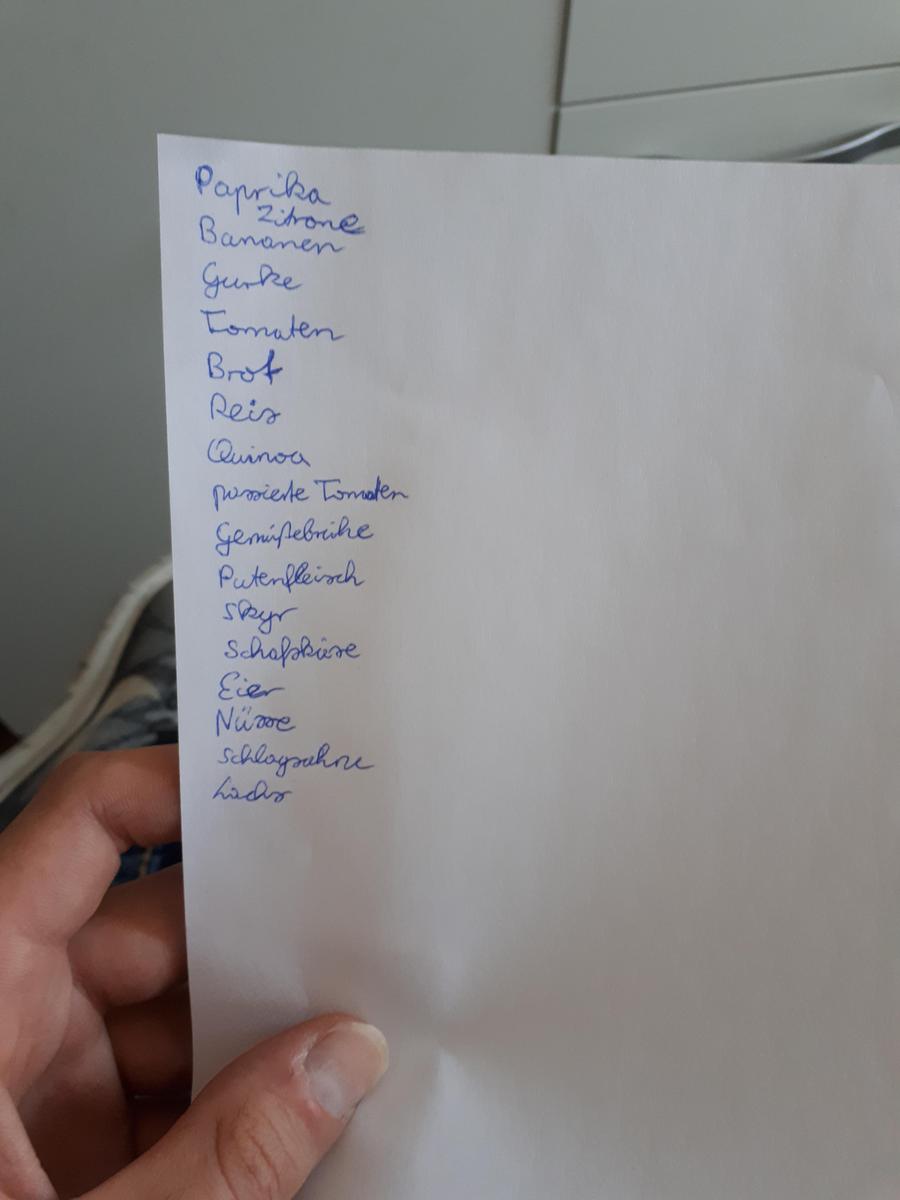 Paprika
Zitrone
Bananen
Gurke
Tomaten
Brot
Reis
Quinoa
passierte Tomaten
Gemüßebrühe
Putenfleisch
Skyr
Schafskäse
Eier
Nüsse
Schlagsahne
Lachs